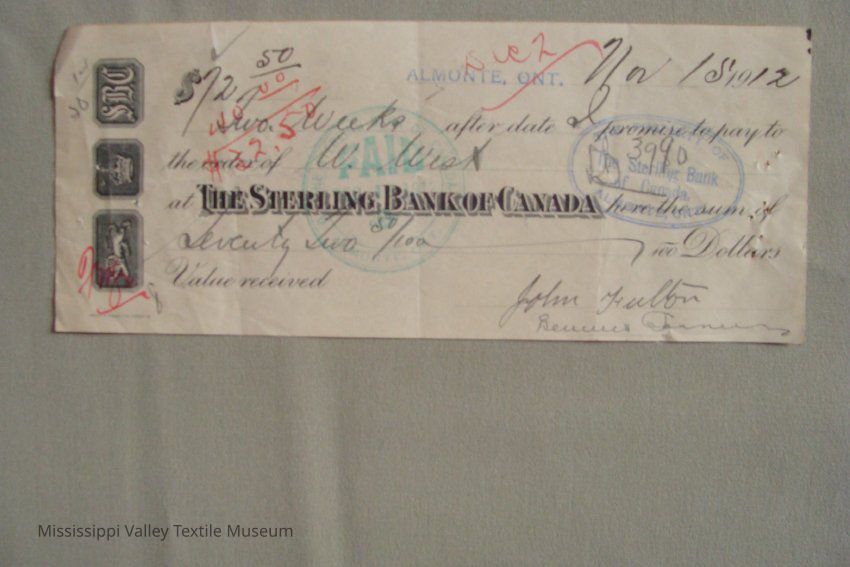 Dec 2
ALMONTE, ONT. Nov 15 1912
SBC
$72 50
40
$32.50
Two Weeks after date I promise to pay to
the order of W. West
PAID
3990
The Sterling Bank
of Canada
at THE STERLING BANK OF CANADA here the sum of
Seventy Two 50/100 /100 Dollars
Value received
John Fulton
Mississippi Valley Textile Museum